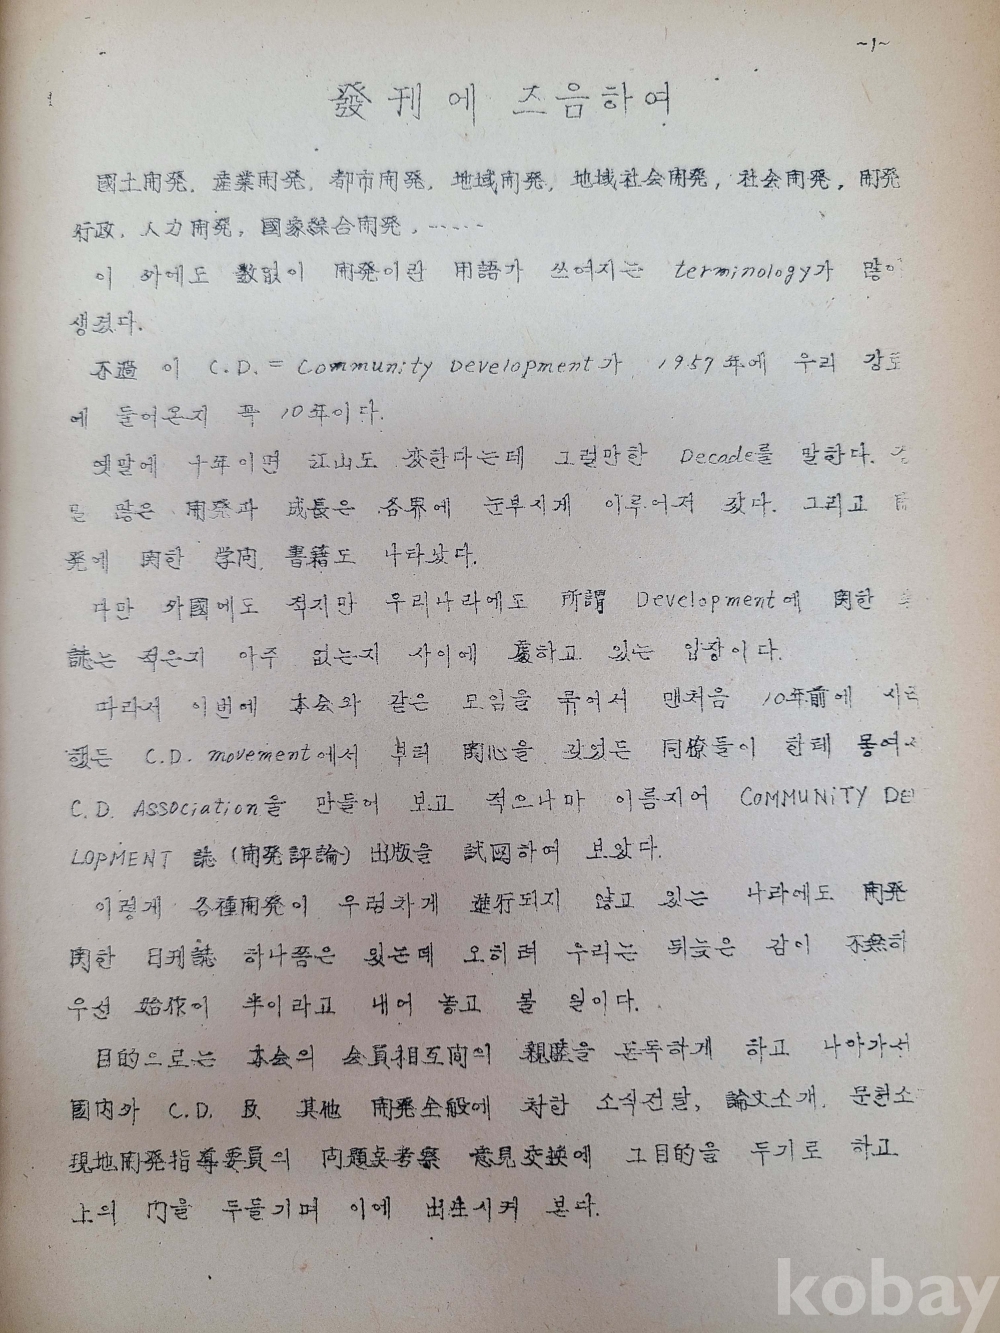 ~1~
發刊에 즈음하여
國土開発, 産業開発, 都市開発, 地域開発, 地域社会開発, 社会開発, 開発
行政, 人力開発, 國家綜合開発, ‥‥‥
이 外에도 數없이 開発이란 用語가 쓰여지는 terminology가 많이
생겼다.
不過 이 C.D. = Community Development가 1957年에 우리 강토
에 들어온지 꼭 10年이다.
옛말에 十年이면 江山도 変한다는데 그럴만한 Decade를 말한다.
많은 開発과 成長은 各界에 눈부시게 이루어져 갔다. 그리고 開
発에 関한 学问, 書籍도 나타났다.
다만 外國에도 적지만 우리나라에도 所謂 Development에 関한
誌는 적은지 아주 없는지 사이에 處하고 있는 입장이다.
따라서 이번에 本会와 같은 모임을 묶어서 맨처음 10年前에 시작
했든 C.D. movement에서 부터 関心을 갖었든 同僚들이 한테 뭉여서
C.D. Association을 만들어 보고 적으나마 이름지어 COMMUNITY DEV
LOPMENT 誌 (開発評論) 出版을 試図하여 보았다.
이렇게 各種開発이 우렁차게 進行되지 않고 있는 나라에도 開発
関한 日刊誌 하나쯤은 있는데 오히려 우리는 뒤늦은 감이 不無하
우선 始作이 半이라고 내어 놓고 볼 일이다.
目的으로는 本会의 会員相互间의 親睦을 돈독하게 하고 나아가서
國内外 C.D. 및 其他 開発全般에 対한 소식전달, 論文소개, 문헌소
現地開発指導委員의 问題点考察 意見交換에 그目的을 두기로 하고
上의 门을 두들기며 이에 出生시켜 본다.
kobay